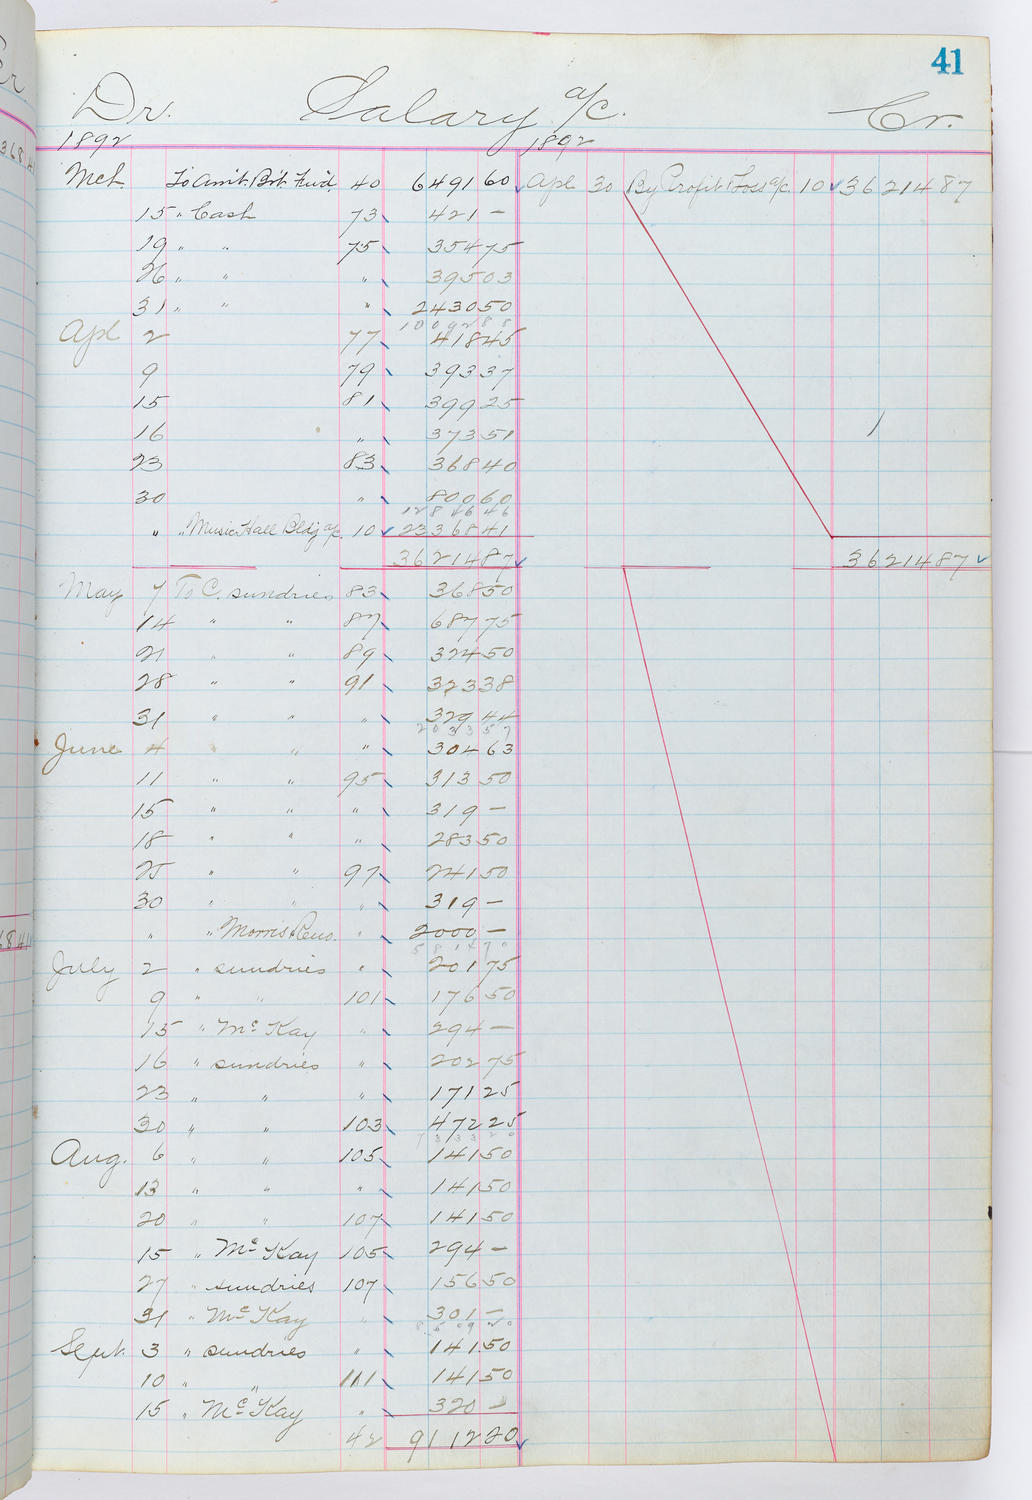 41
Dr. Salary a/c. Cr.
1892 1892
Mch To Amt. Bot. Fwd 40 6491 60 Apl 30 By Profit & Loss a/c 10 36214 87
15 " Cash 73 421 —
19 " " 75 354 75
26 " " " 395 03
31 " " " 2430 50
10092 88
Apl 2 77 418 45
9 79 393 37
15 81 399 25
16 " 373 51
23 83 368 40
30 " 800 60
12846 46
" " Music Hall Bldg a/c. 10 23368 41
36214 87 36214 87
May 7 To C. sundries 83 368 50
14 " " 87 687 75
21 " " 89 324 50
28 " " 91 323 38
31 " " " 329 44
2033 57
June 4 " " 304 63
11 " " 95 313 50
15 " " " 319 —
18 " " " 283 50
25 " " 97 241 50
30 " " " 319 —
" " Morris Reno. " 2000 —
5814 70
July 2 " sundries " 201 75
9 " " 101 176 50
15 " McKay " 294 —
16 " sundries " 202 75
23 " " " 171 25
30 " " 103 472 25
7333 20
Aug. 6 " " 105 141 50
13 " " " 141 50
20 " " 107 141 50
15 " McKay 105 294 —
27 " sundries 107 156 50
31 " McKay " 301 —
8509 20
Sept. 3 " sundries " 141 50
10 " " 111 141 50
15 " McKay " 320 —
42 9112 20